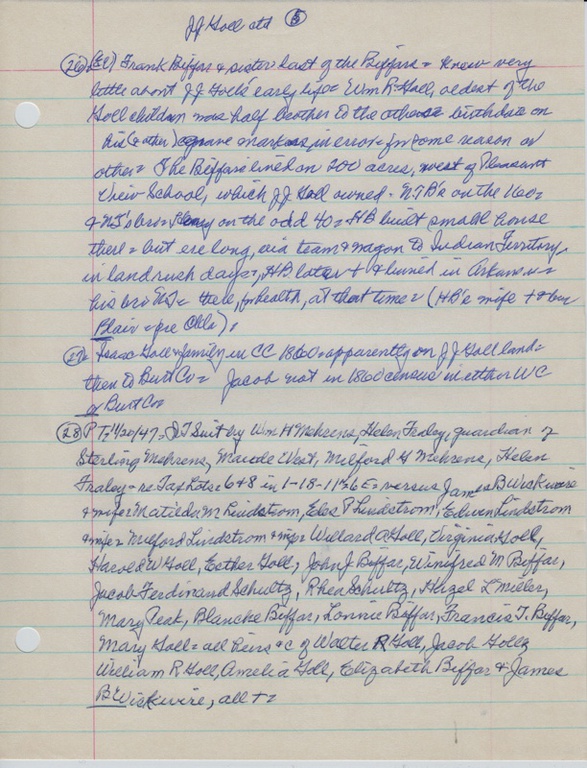 JJ Goll ctd (5)
(26) Frank Biffar & sister last of the Biffars = knew very
little about JJ Goll's early life = Wm R Goll, oldest of the
Goll children was half brother to the others = birthdate on
his (& other) grave markers, in error = for some reason or
other = The Biffars lived on 200 acres, west of Pleasant
View School, which JJ Goll owned = NJB's on the 160 =
& NJ's bro = Henry on the odd 40 = HB built small house
there = but ere long, via team & wagon to Indian Territory,
in land rush days =, HB later + & buried in Arkansas =
his bro NJ = there, for health, at that time = (HB's wife + & bur
Blair = pre
(27) = Isaac Goll & family in CC 1860 = apparently on JJ Goll land =
then to Burt Co = Jacob not in 1860 census in either WC
or Burt Co
(28) PT, 11/20/47 = Suit by Wm H Mehrens, Helen Fraley, guardian of
Sterling Mehrens, Maude West, Milford H Mehrens, Helen
Fraley = re Tax Lots = 6 & 8 in 1-18-11 = versus James B Wiskwire
& wife = Matilda M Lindstrom, P Lindstrom, Lindstrom
& wife = Milford Lindstrom & wife Willard A Goll, Virginia Goll,
Harold W Goll, Esther Goll, John J Biffar, Winifred M Biffar,
Jacob Ferdinand Schultz, Rhea Schultz, Hazel L Miller,
Mary Peek, Blanche Biffar, Lonnie Biffar, Francis T. Biffar,
Mary Goll = all heirs &c of Walter R Goll, Jacob Goll,
William R Goll, Amelia Goll, Elizabeth Biffar & James
B Wiskwire, all + =